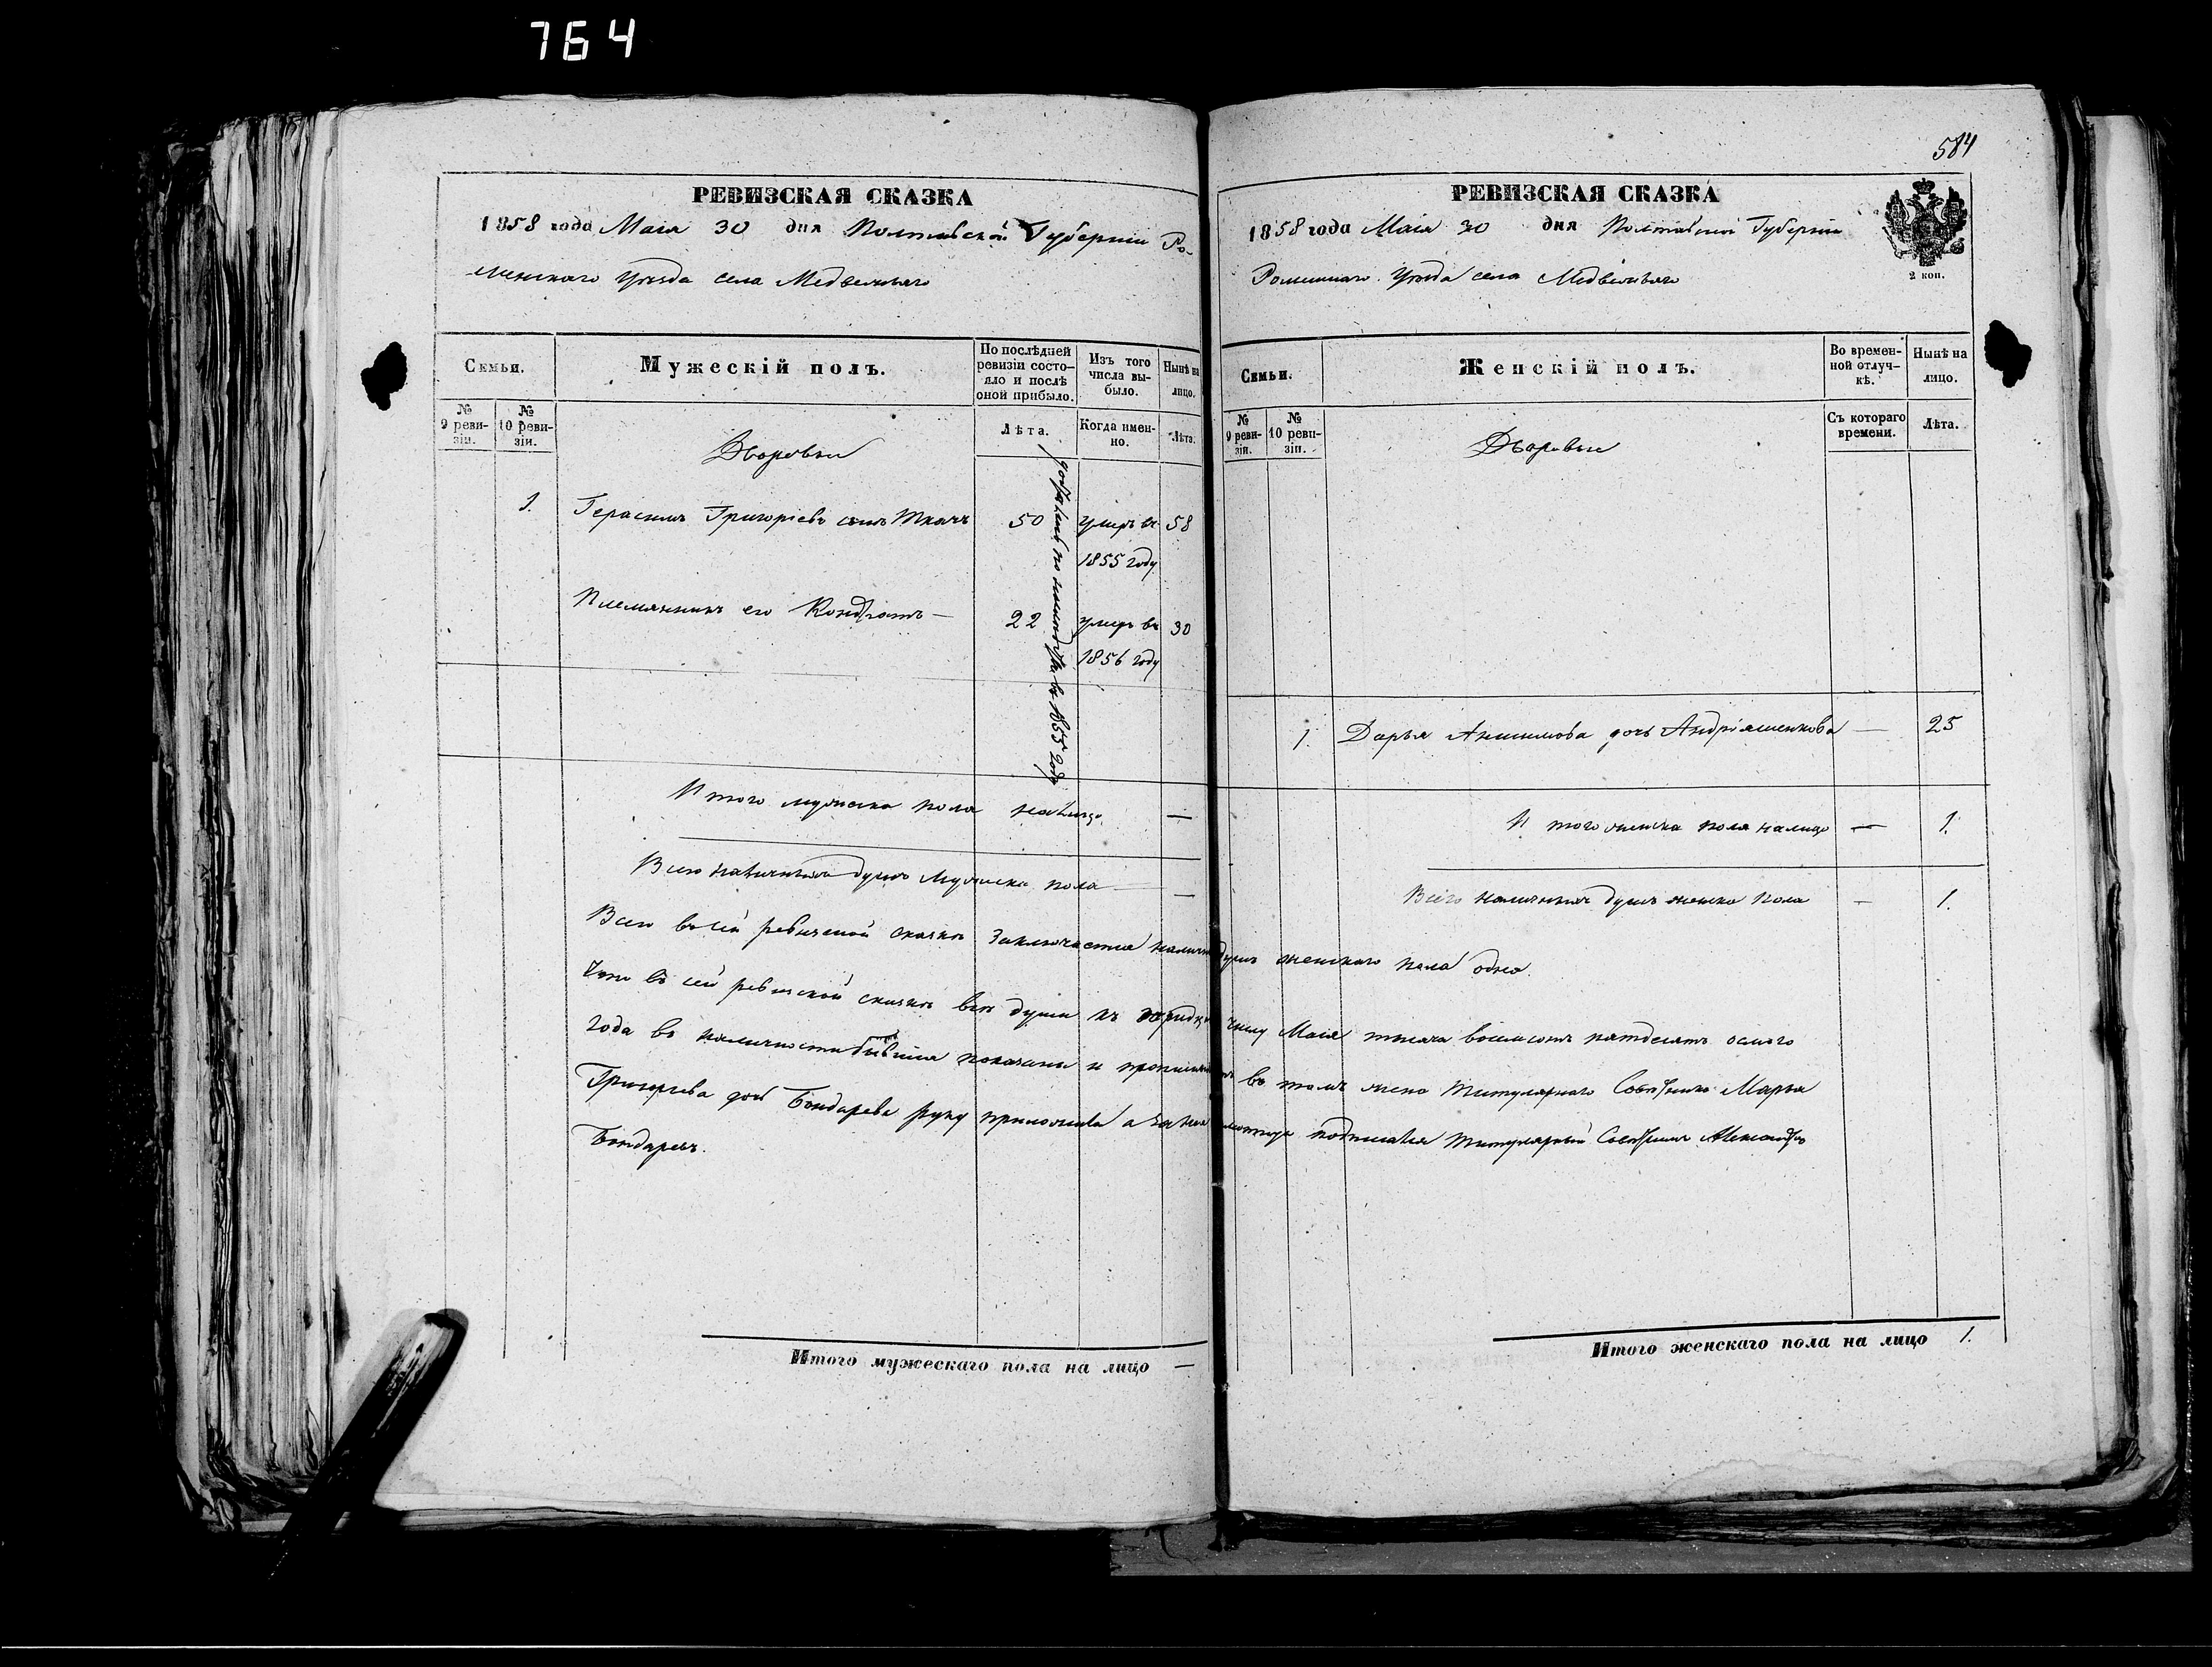 764
584
РЕВИЗСКАЯ СКАЗКА
1858 года Маія 30 дня Полтавской Губерніи Ро-
менскаго Уѣзда села Медвежьяго
Семьи.
Мужескій полъ.
По послѣдней ревизіи состо-яло и послѣ оной прибыло.
Изъ того числа вы-было.
Нынѣ на лицо.
№ 9 реви-зіи.
№ 10 реви-зіи.
Лѣта.
Когда имен-но.
Лѣта.
Дворовыи
1. Герасимъ Григоріевъ сынъ Ткачъ 50 умеръ въ 58
1855 году
Племянникъ его Кондратъ — 22 умеръ въ 30
1856 году
по въ 1855 году
Итого мужеска пола налицо. —
Всего наличныхъ душъ мужеска пола — —
РЕВИЗСКАЯ СКАЗКА
1858 года Маія 30 дня Полтавской Губерніи
Роменскаго Уѣзда села Медвежьяго
2 коп.
Семьи.
Женскій полъ.
Во времен-ной отлуч-кѣ.
Нынѣ на лицо.
№ 9 реви-зіи.
№ 10 реви-зіи.
Съ котораго времени.
Лѣта.
Дворовые
1. Дарья Анисимова дочь Андріяшенкова — 25
Итого женска пола налицо — 1.
Всего наличныхъ душъ женска пола — 1.
Всего въ сей ревизской сказкѣ заключается налич душъ женскаго пола одна.
Что въ сей ревизской сказкѣ всѣ души къ числу Маія тысяча восемсотъ пятдесятъ осмого
года въ наличности бывшія показаны и въ томъ жена Титулярнаго Совѣтника Марья
Григорьева дочь Бондарева руку приложила а за нея подписался Титулярный Совѣтникъ Александръ
Бондаревъ.
Итого мужескаго пола на лицо —
Итого женскаго пола на лицо 1.